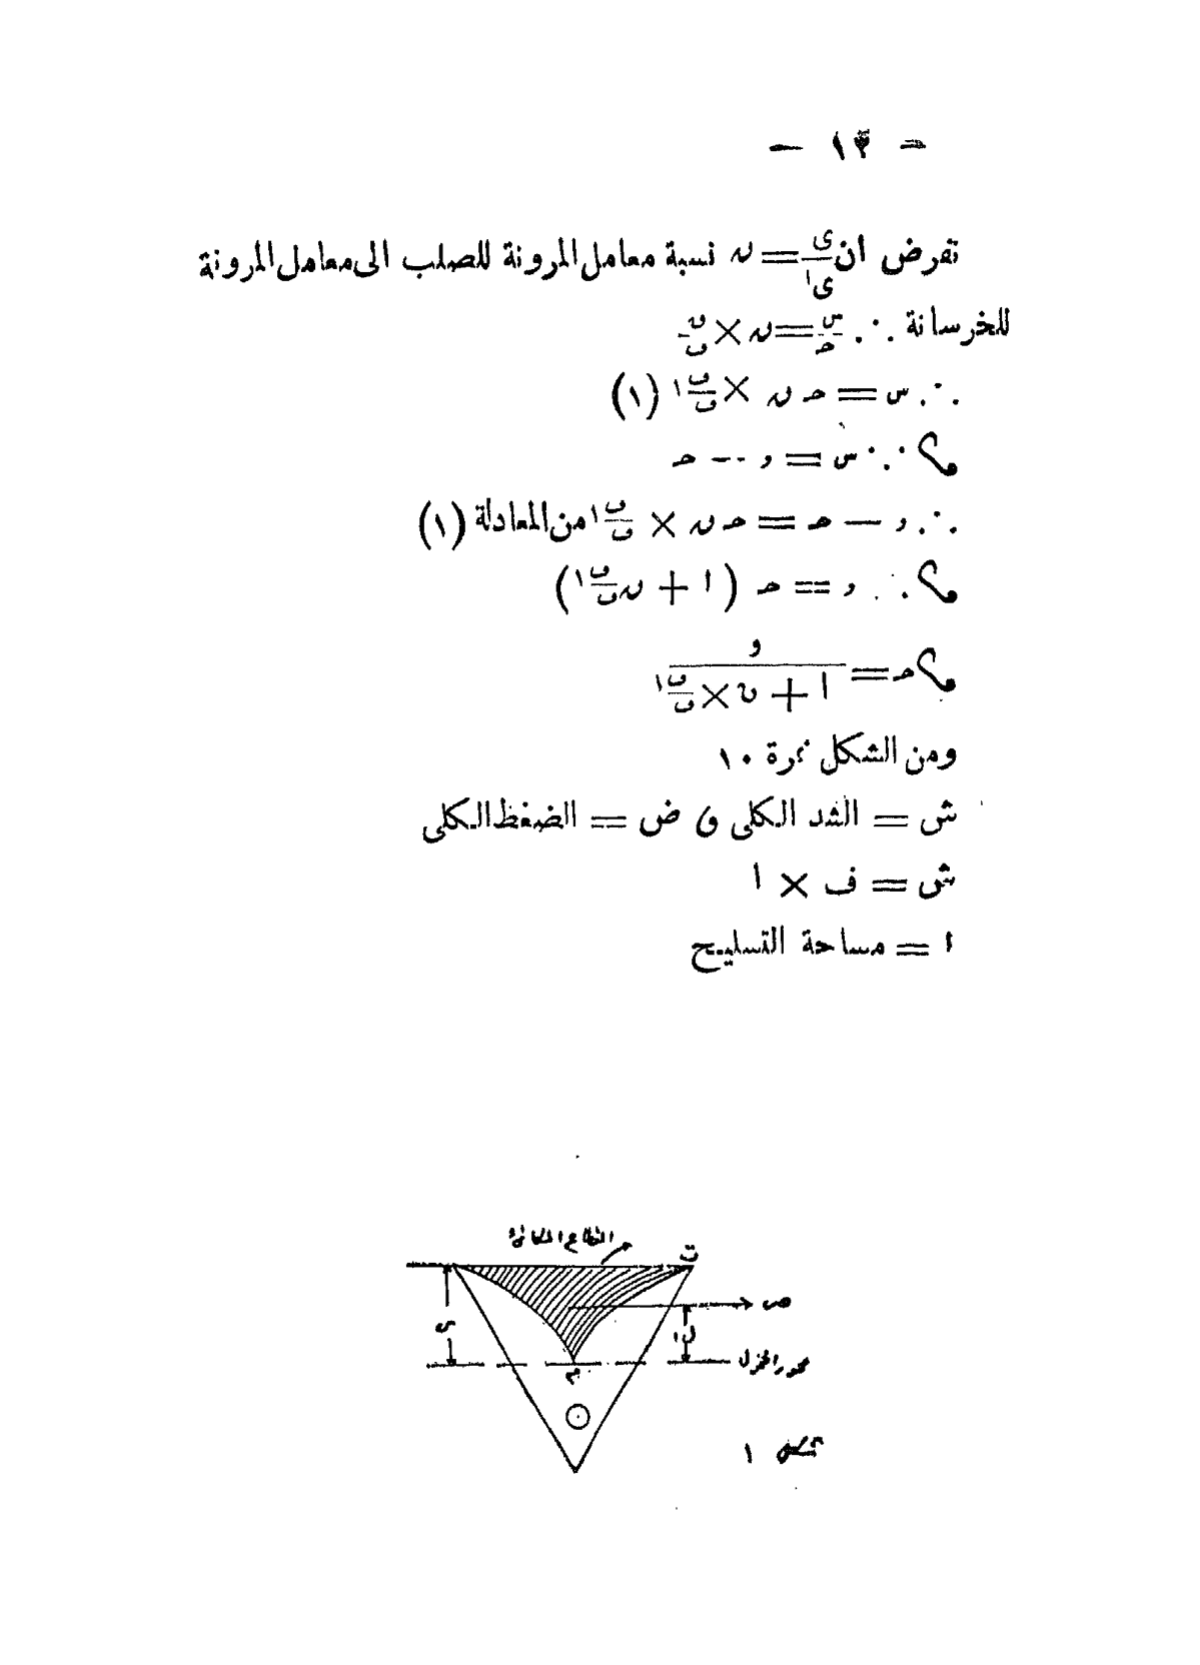 — ١٣ —
نفرض ان ى/ى١ = ں نسبة معامل المرونة للصلب الى معامل المرونة
للخرسانة ∴ س/حـ = ں × ف/ف
∴ س = حـ ں × ف١/ف (١)
و ∵ س = و — حـ
∴ و — حـ = حـ ں × ف١/ف من المعادلة (١)
و ∴ و = حـ (١ + ں ف١/ف)
و حـ = و / (١ + ں × ف١/ف)
ومن الشكل نمرة ١٠
ش = الشد الكلى و ض = الضغط الكلى
ش = ف × ا
ا = مساحة التسليح
القطاع المكافئ
ت
ض
س
ل١
محور الخزل
م
شكل ١